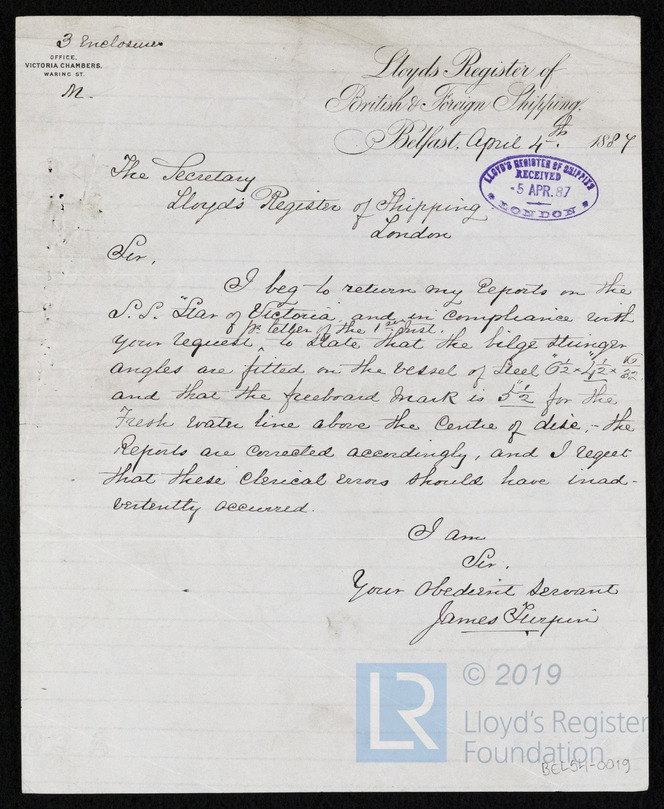 3 Enclosures
OFFICE,
VICTORIA CHAMBERS,
WARING ST.
M.
Lloyds Register of
British & Foreign Shipping.
Belfast, April 4th. 1887
LLOYD'S REGISTER OF SHIPPING
RECEIVED
-5 APR. 87
LONDON
The Secretary
Lloyd's Register of Shipping
London
Sir,
I beg to return my Reports on the
S.S. "Star of Victoria" and in compliance with
pr letter of the 1st inst.
your request, to state that the bilge stringer
angles are fitted on the vessel of Steel 6½ × 4½ × 16/32
and that the freeboard mark is 5½" for the
Fresh water line above the Centre of disc, - the
Reports are corrected accordingly, and I regret
that these Clerical errors should have inad-
vertently occurred.
I am
Sir.
Your Obedient Servant
James Turpin
LR
© 2019
Lloyd's Register
Foundation
BEL54-0019